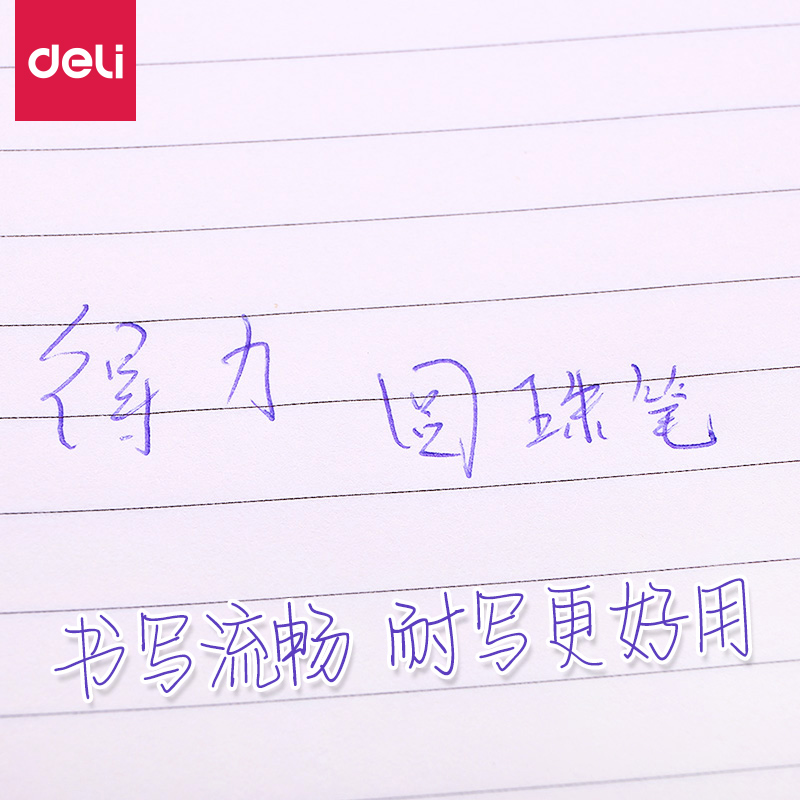 deli
得力 圆珠笔
书写流畅 耐写更好用